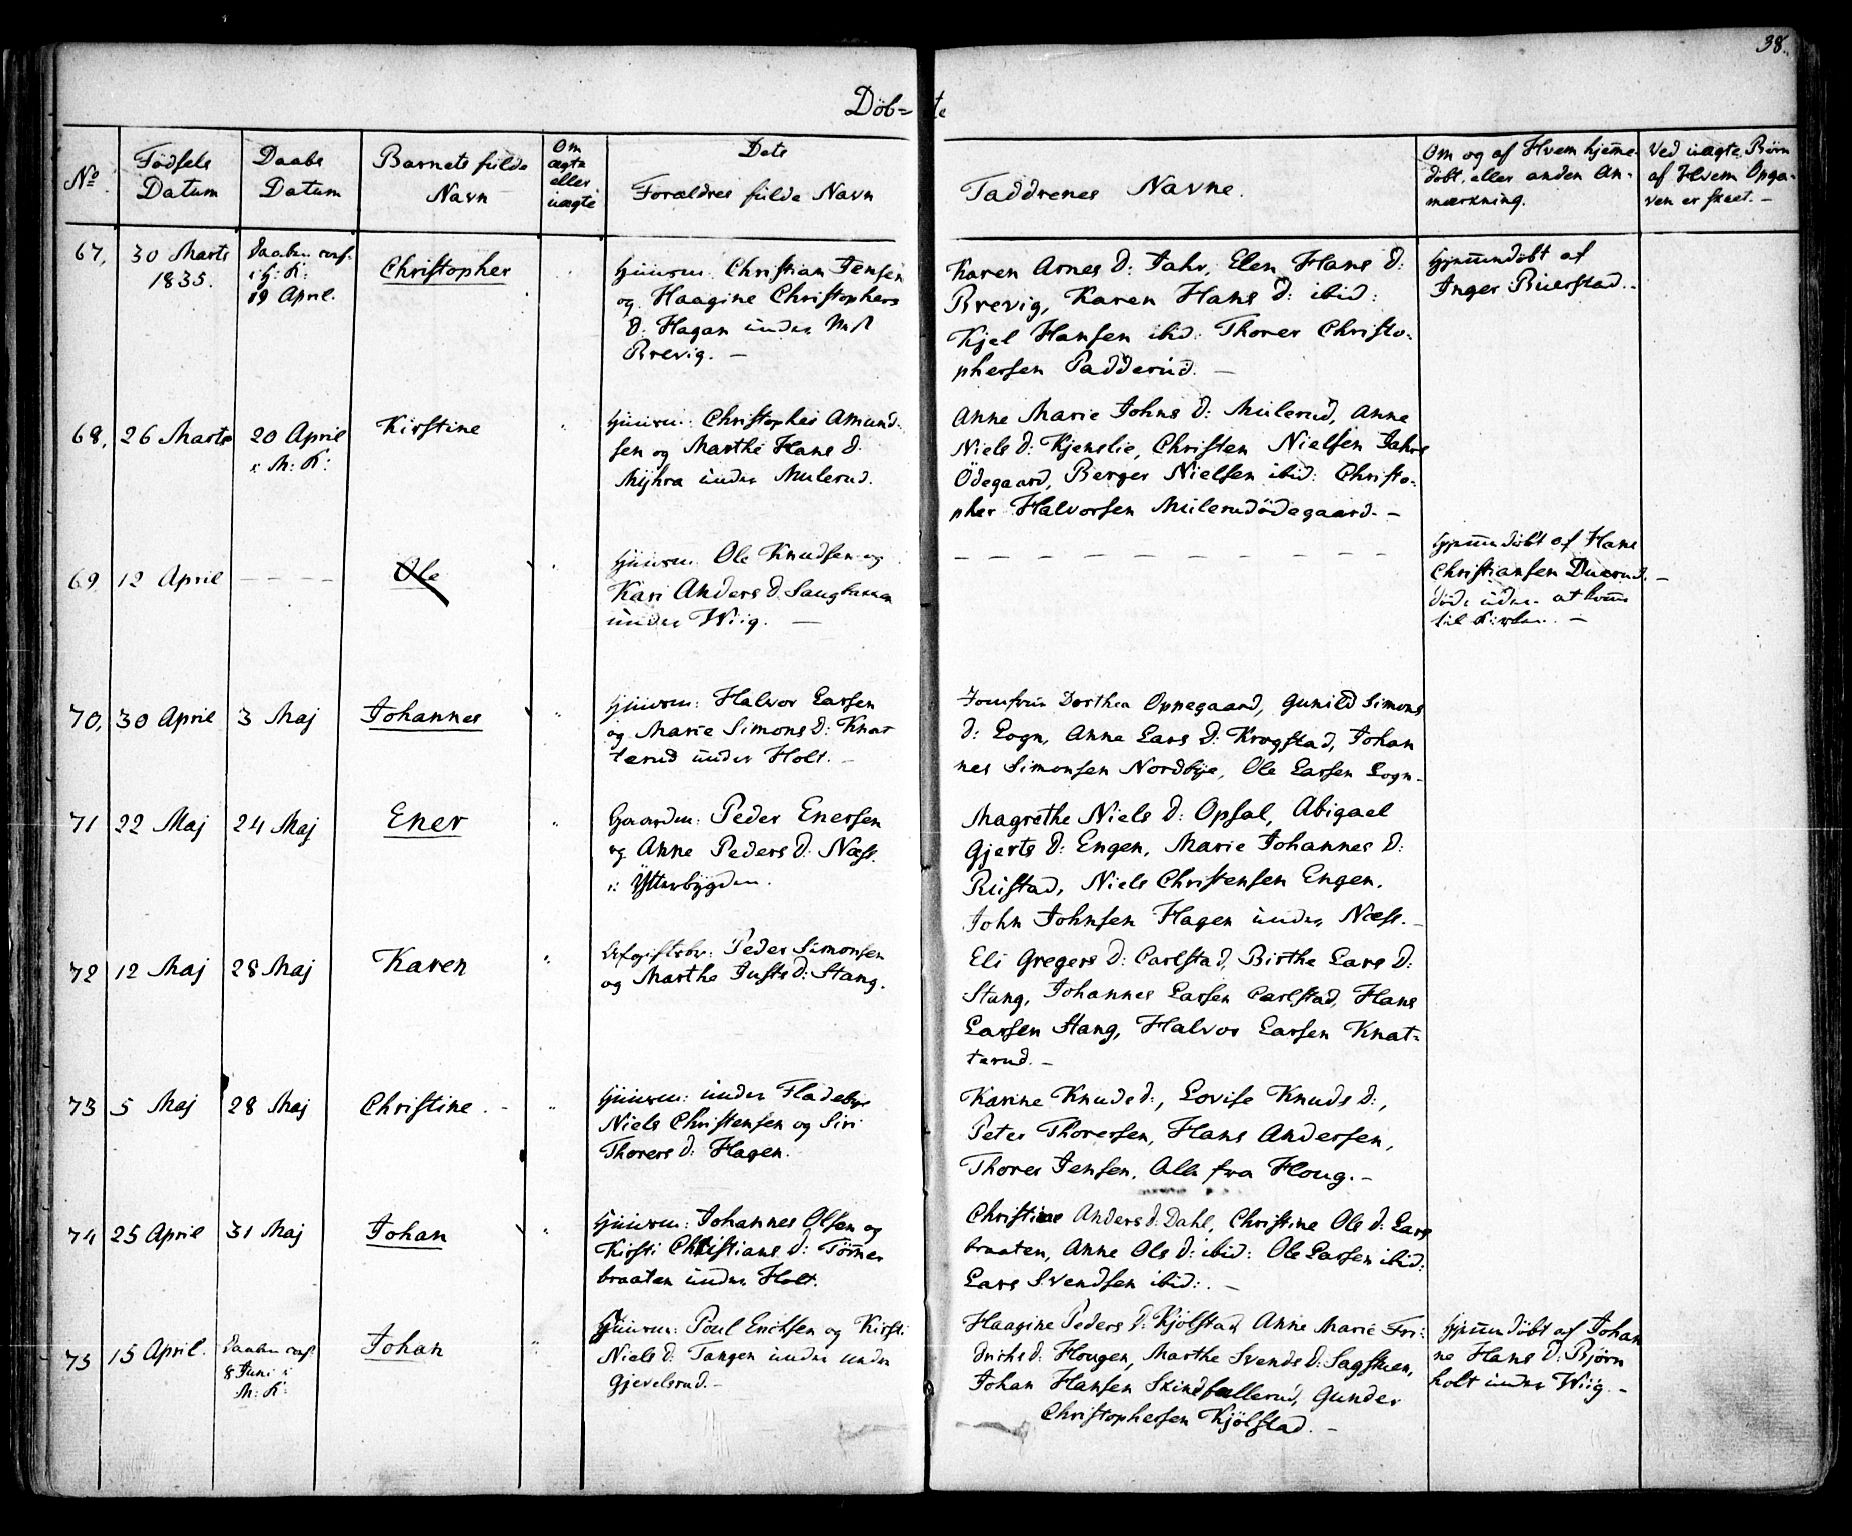 38.
Döb=te
No
Födsels
Datum
Daabs
Datum
Barnets fulde
Navn
Om
ægte
eller
uægte
Dets
Forældres fulde Navn
Faddrenes Navne.
Om og af Hvem hjem̅e-
döbt, eller anden An-
mærkning.
Ved uægte Börn
af Hvem Opga-
ven er skeet. -
67,
30 Marts
1835.
Daaben conf.
i H: K:
19 April.
Christopher
Huusm: Christian Jensen
og Haagine Christophers
d: Hagan under
Brevig. -
Karen Arnes d: Jahr, Elen Hans d:
Brevig, Karen Hans d: ibid:
Kjel Hansen ibid: Thorer Christo-
phersen Padderud. -
Hjem̅edöbt af
Inger Bierstad. -
68,
26 Marts
20 April
i M: K:
Kirstine
Huusm: Christopher Amund-
sen og Marthe Hans d:
Myhra under Mulerud.
Anne Marie Johns d: Mulerud, Anne
Niels d: Kjenslie, Christen Nielsen Jahrs
Ödegaard, Berger Nielsen ibid: Christo-
pher Halvorsen Mulerudödegaard. -
69
12 April
- - - -
Ole
Huusm: Ole Knudsen og
Kari Anders d: Saugbakken
under Wiig. -
- - - - - - - - - - - -
Hjem̅edöbt af Hans
Christiansen Duerud. -
döde uden at kom̅e
til Kirken. -
70,
30 April
3 Maj
Johannes
Huusm: Halvor Larsen
og Marie Simons d: Knat-
terud under Holt. -
Jomfrue Dorthea Opnegaard, Gunild Simons
d: Logn, Anne Lars d: Krogstad, Johan
nes Simonsen Nordbye, Ole Larsen Logn -
71
22 Maj
24 Maj
Ener
Gaardm: Peder Enersen
og Anne Peders d: Næss.
i Ytterbygden.
Magrethe Niels d: Opsal, Abigael
Gjerts d: Engen, Marie Johannes d:
Rustad, Niels Christensen Engen,
John Johnsen Hagen under Næss. -
72
12 Maj
28 Maj
Karen
Peder Simonsen
og Marthe Justs d: Stang.
Eli Gregers d: Carlstad, Birthe Lars d:
Stang, Johannes Larsen Carlstad, Hans
Larsen Stang, Halvor Larsen Knat-
terud. -
73
5 Maj
28 Maj
Christine. -
Huusm: under Fladebye
Niels Christensen og Siri
Thorers d: Hagen.
Karine Knuds d:, Lovise Knuds d:,
Peter Thoresen, Hans Andersen,
Thorer Jensen, Alle fra Houg. -
74
25 April
31 Maj
Johan
Huusm: Johannes Olsen og
Kirsti Christians d: Tömer
braaten under Holt.
Christine Anders d: Dahl, Christine Ols d: Lars
braaten, Anne Ols d: ibid: Ole Larsen ibid:
Lars Svendsen ibid:. -
75
15 April.
Daaben conf.
8 Juni i
M: K:
Johan
Huusm: Poul Erichsen og Kirsti
Niels d: Tangen under under
Gjevelsrud. -
Haagine Peders d: Kjölstad, Anne Marie Fri-
drichs d: Hougen, Marthe Svends d: Sagstuen,
Johan Hansen Skindfællerud, Gunder
Christophersen Kjölstad. -
Hjem̅edöbt af Johan
ne Hans d: Björn
holt under Wiig. -